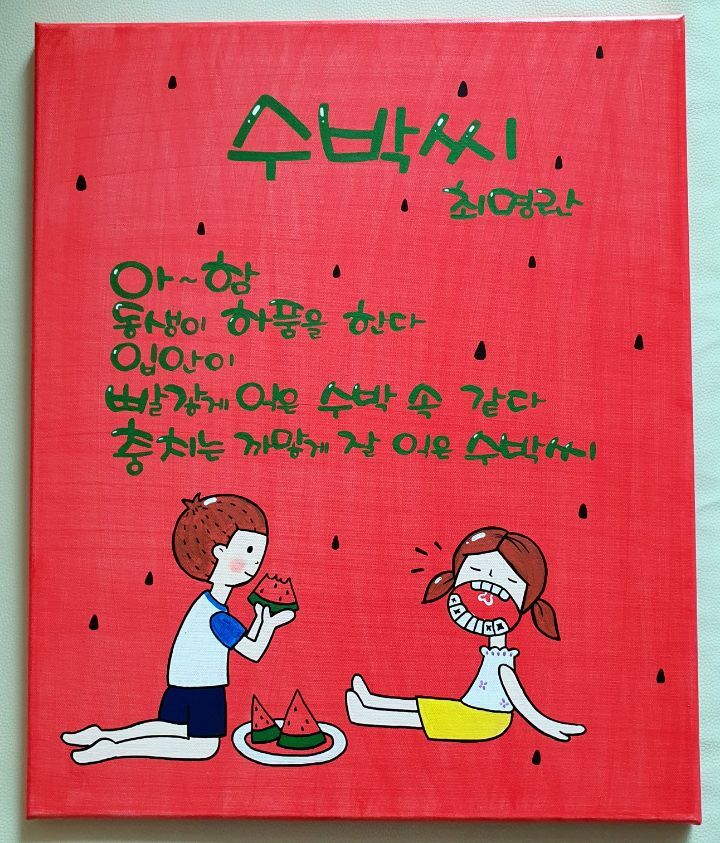 수박씨
최명란
아~함
동생이 하품을 한다
입안이
빨갛게 익은 수박 속 같다
충치는 까맣게 잘 익은 수박씨